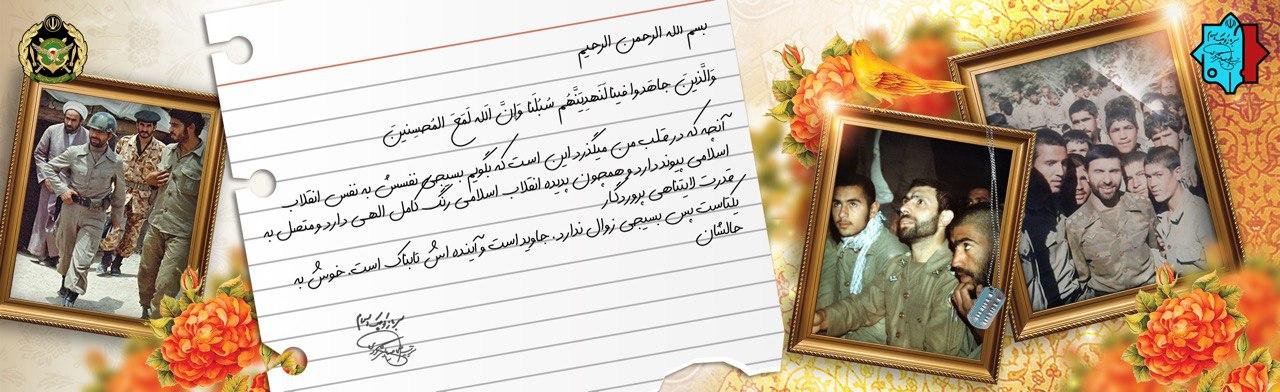 بسم الله الرحمن الرحیم
وَالَّذینَ جاهَدوا فینا لَنَهدِیَنَّهُم سُبُلَنا وَانَّ اللهَ لَمَعَ المُحسِنینَ
آنچه که در قلب من میگذرد این است که بگویم بسیجی نفسش به نفس انقلاب
اسلامی پیوند دارد و همچون پدیده انقلاب اسلامی رنگ کامل الهی دارد و متصل به
قدرت لایتناهی پروردگار
یکتاست پس بسیجی زوال ندارد، جاوید است و آینده اش تابناک است، خوش به
حالشان